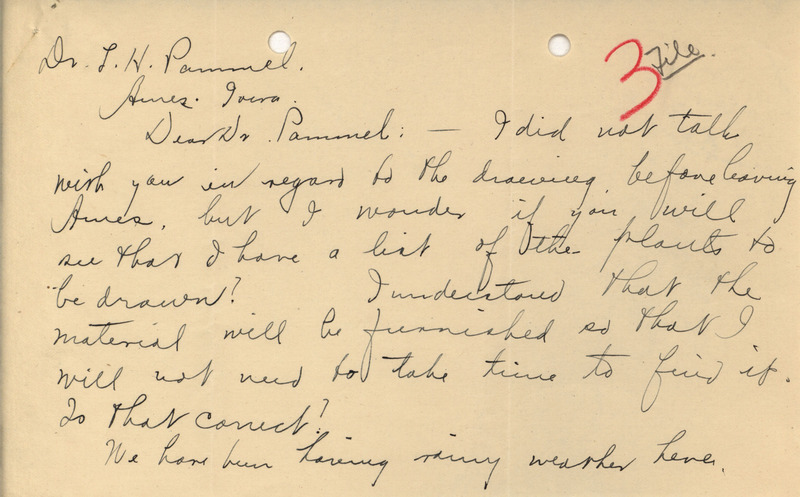 Dr. L. H. Pammel.
3 File.
Ames. Iowa.
Dear Dr. Pammel: — I did not talk
with you in regard to the drawing before leaving
Ames, but I wonder if you will
see that I have a list of the plants to
be drawn? I understood that the
material will be furnished so that I
will not need to take time to find it.
Is that correct?
We have been having rainy weather here.